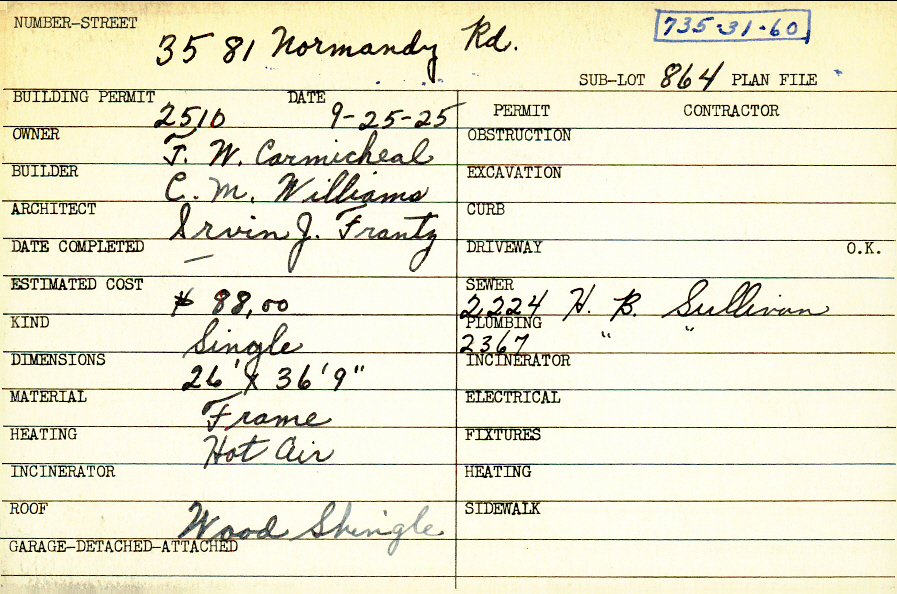 NUMBER-STREET
3581 Normandy Rd.
735-31-60
SUB-LOT 864 PLAN FILE
BUILDING PERMIT 2510 DATE 9-25-25
OWNER J. W. Carmicheal
BUILDER C. M. Williams
ARCHITECT Irvin J. Frantz
DATE COMPLETED —
ESTIMATED COST $ 88,00
KIND Single
DIMENSIONS 26' X 36'9"
MATERIAL Frame
HEATING Hot Air
INCINERATOR
ROOF Wood Shingle
GARAGE-DETACHED-ATTACHED
PERMIT CONTRACTOR
OBSTRUCTION
EXCAVATION
CURB
DRIVEWAY O.K.
SEWER 2224 H. B. Sullivan
PLUMBING 2367 " "
INCINERATOR
ELECTRICAL
FIXTURES
HEATING
SIDEWALK